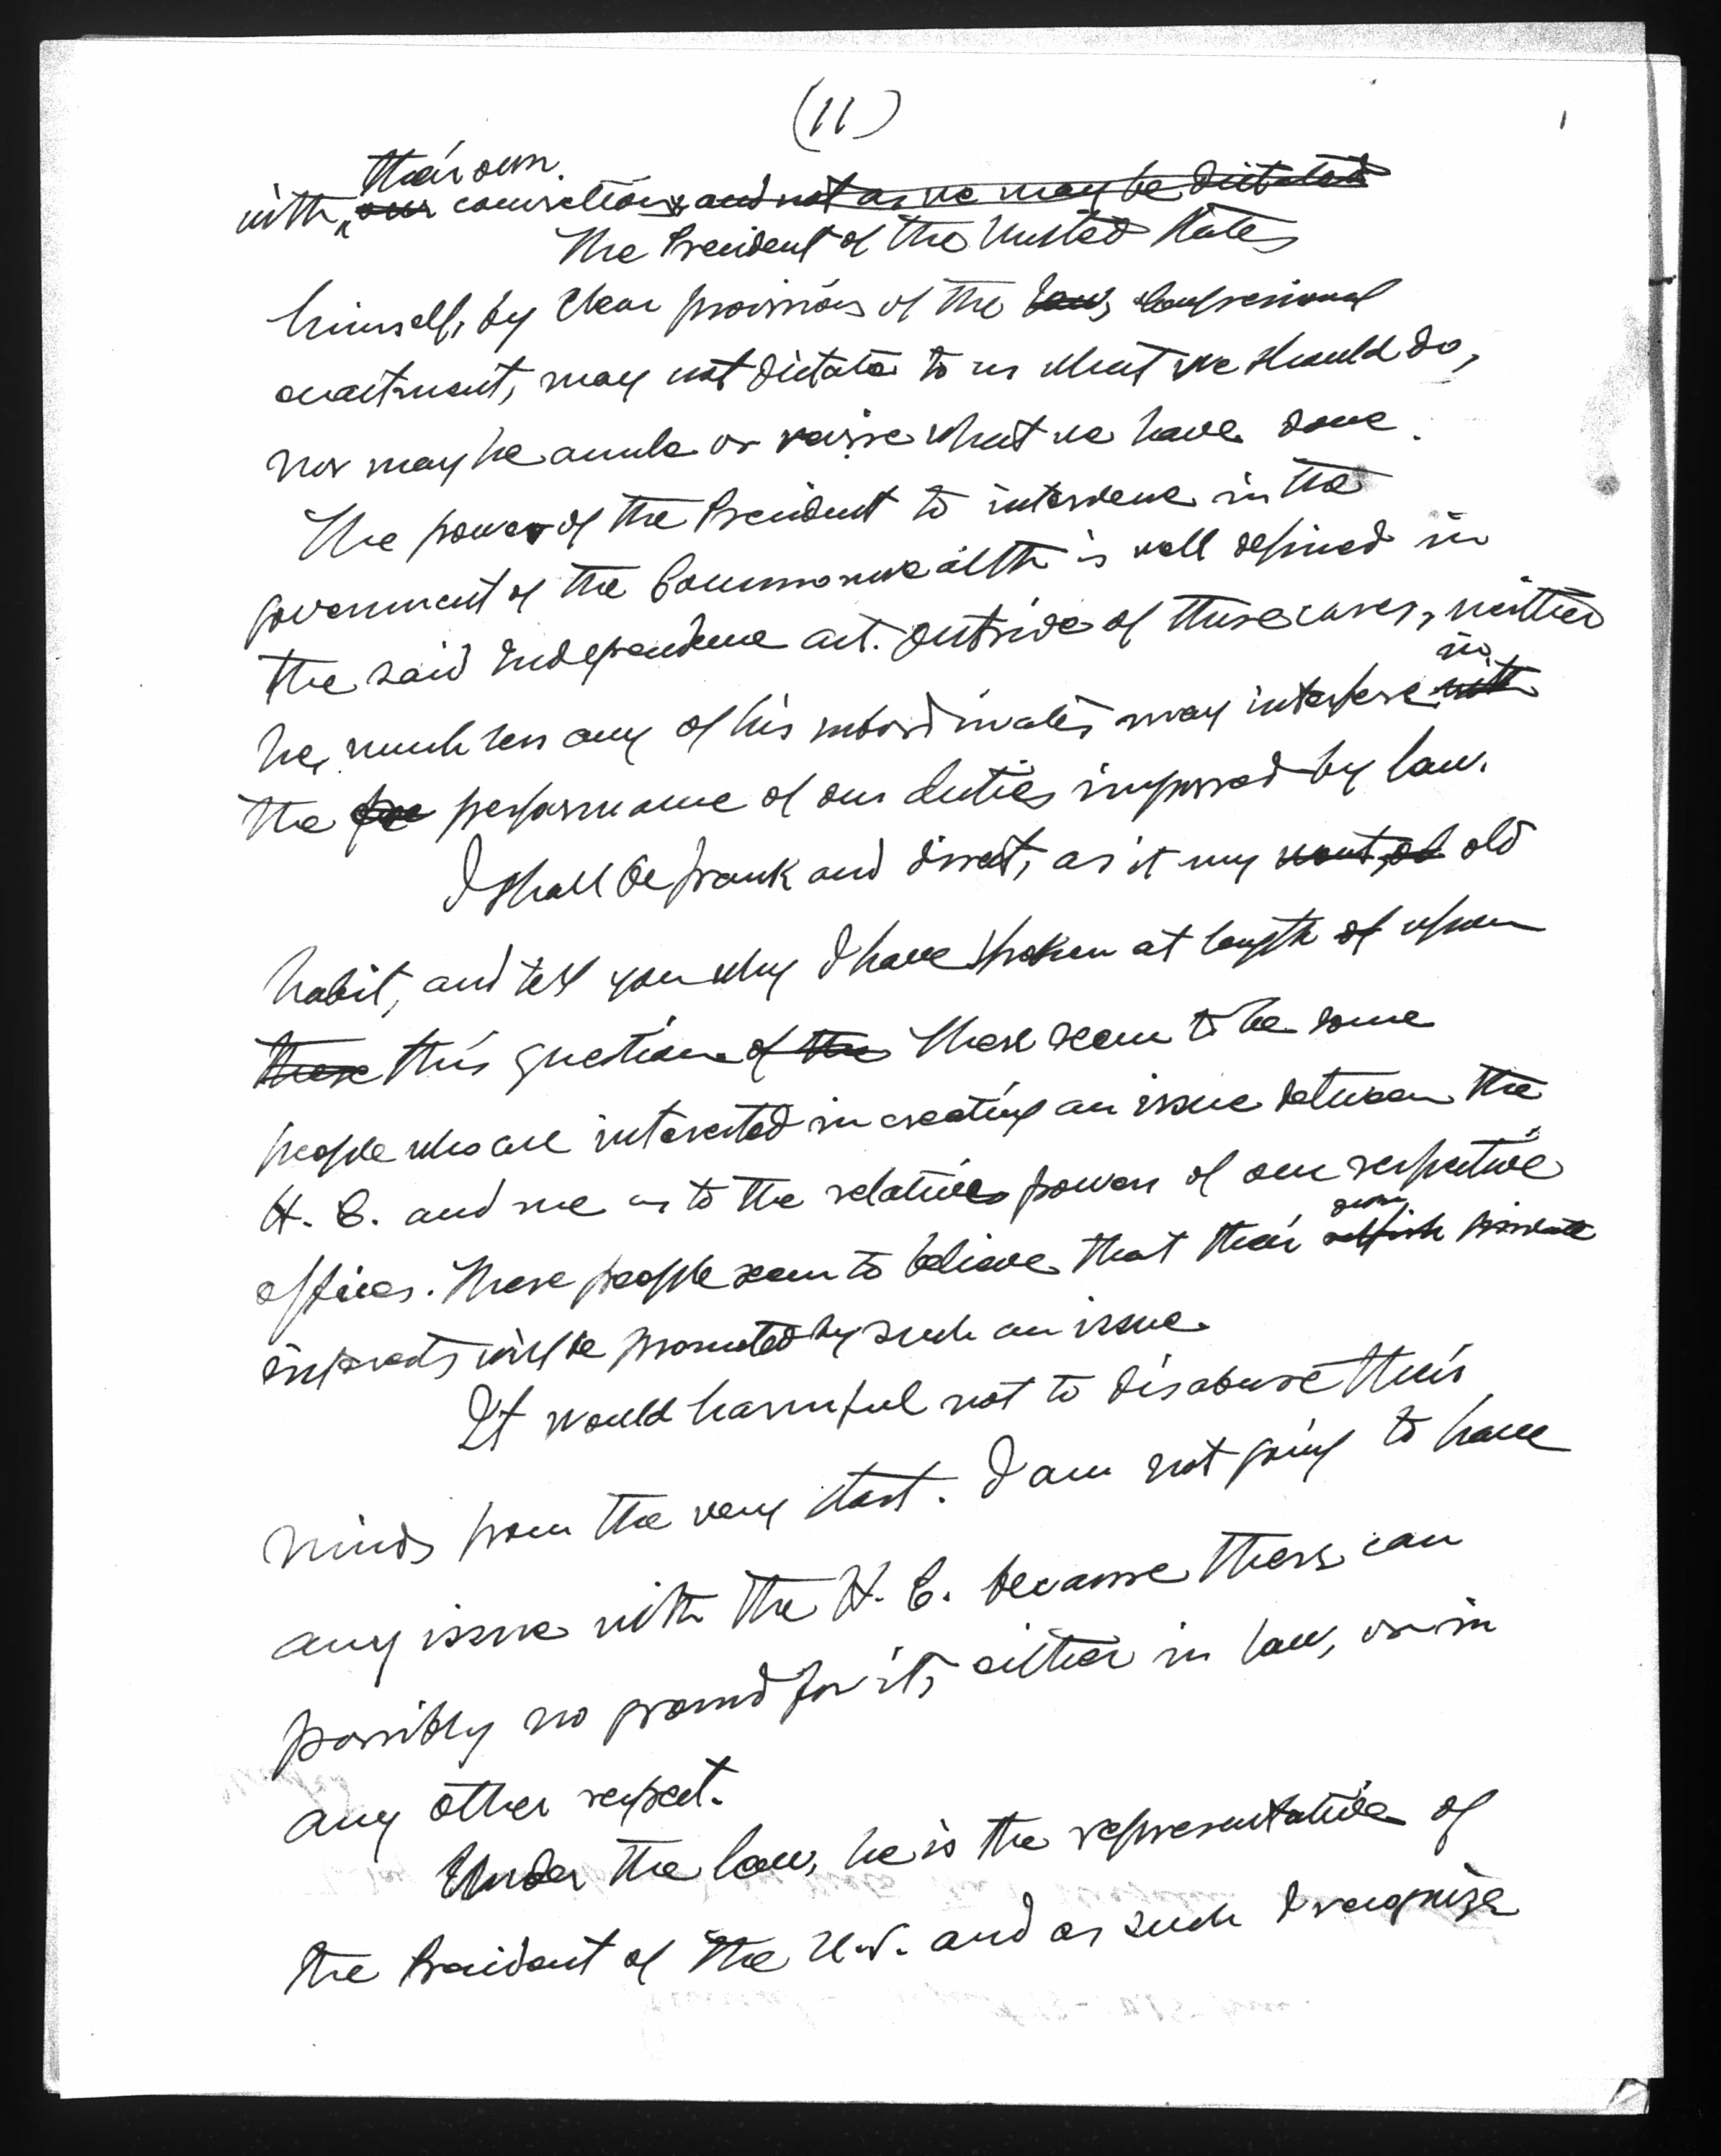 (11)
their own
with our convictions and not as we may be dictated
The President of the United States
himself, by clear provisions of the law, congressional
enactment, may not dictate to us what we should do,
nor may he annul or revise what we have done.
The power of the President to intervene in the
government of the Commonwealth is well defined in
the said Independence act. Outside of those cases, neither
in
he, much less any of his subordinates may interfere with
the performance of our duties imposed by law.
I shall be frank and direct, as it my wont, old
habit, and tell you why I have spoken at length of upon
these this question of the There seem to be some
people who are interested in creating an issue between the
H. C. and me as to the relative powers of our respective
own
offices. These people seem to believe that their selfish private
interests will be promoted by such an issue.
It would harmful not to disabuse their
minds from the very start. I am not going to have
any issue with the H. C. because there can
possibly no ground for it, either in law, or in
any other respect.
Under the law, he is the representative of
the President of the U.S. and as such I recognize